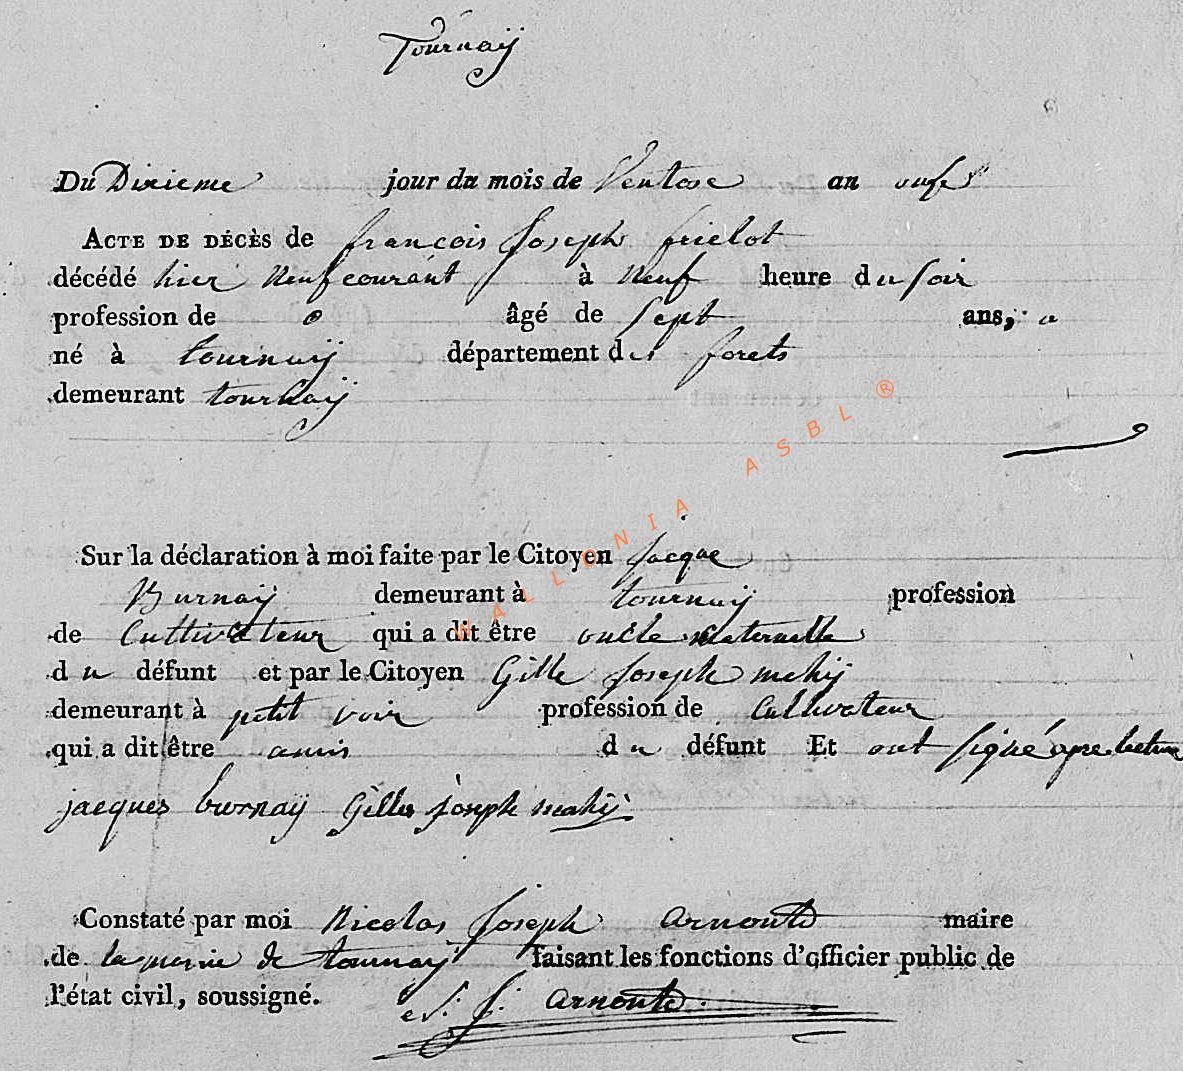 Tournaÿ
Du Dixieme jour du mois de Ventose an onfe
ACTE DE DÉCÈS de francois Joseph frielot
décédé hier Neuf courant à Neuf heure du soir
profession de o âgé de Sept ans,
né à tournaÿ département des forets
demeurant tournaÿ
Sur la déclaration à moi faite par le Citoyen Jacque
Burnaÿ demeurant à tournaÿ profession
de Cultivateur qui a dit être oncle maternelle
du défunt et par le Citoyen Gille Joseph mahÿ
demeurant à petit voir profession de Cultivateur
qui a dit être amis du défunt Et ont signé apre lecture
jacques burnaÿ Gilles joseph mahÿ
Constaté par moi Nicolas Joseph arnould maire
de la mairie de tournaÿ faisant les fonctions d'officier public de
l'état civil, soussigné. N. J. arnould
WALLONIA ASBL ®